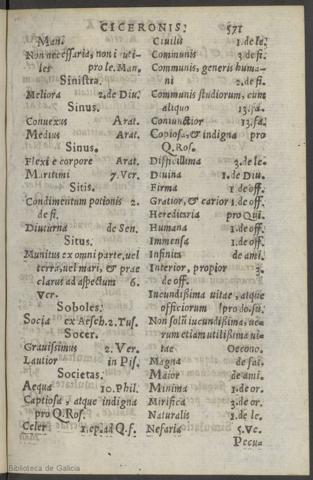 CICERONIS. 571
Man.
Non necessaria, non i utiles
pro le. Man.
Sinistra.
Meliora 2. de Diu.
Sinus.
Conuexus Arat.
Medius Arat.
Sinus.
Flexi e corpore Arat.
Maritimi 7. Ver.
Sitis.
Condimentum potionis 2.
de fi.
Diuturna de Sen.
Situs.
Munitus ex omni parte, uel
terra, uel mari, & præ
clarus ad aspectum 6.
Ver.
Soboles.
Socia ex Aesch. 2. Tus.
Socer.
Grauissimus 2. Ver.
Lautior in Pis.
Societas.
Aequa 10. Phil.
Captiosa, atque indigna
pro Q. Ros.
Celer 1. ep. ad Q. f.
Ciuiliū 1. de le.
Communis 3. de fi.
Communis, generis huma-
ni 2. de fi.
Communis studiorum, cum
aliquo 13. fa.
Coniunctior 13. fa.
Copiosa, & indigna pro
Q. Ros.
Difficillima 3. de le.
Diuina 1. de Diu.
Firma 1 de off.
Gratior, & carior 1. de off.
Hereditaria pro Qui.
Humana 1. de off.
Immensa 1. de off.
Infinita de ami.
Interior, propior 3.
de off.
Iucundissima uitæ, atque
officiorum pro do. su.
Non solū iucundissima, ue
rum etiam utilissima ui
tæ Oecono.
Magna de fat.
Maior de ami.
Minima 1. de or.
Mirifica 3. de or.
Naturalis 1. de le.
Nefaria 5. Ve.
Pecua
Biblioteca de Galicia